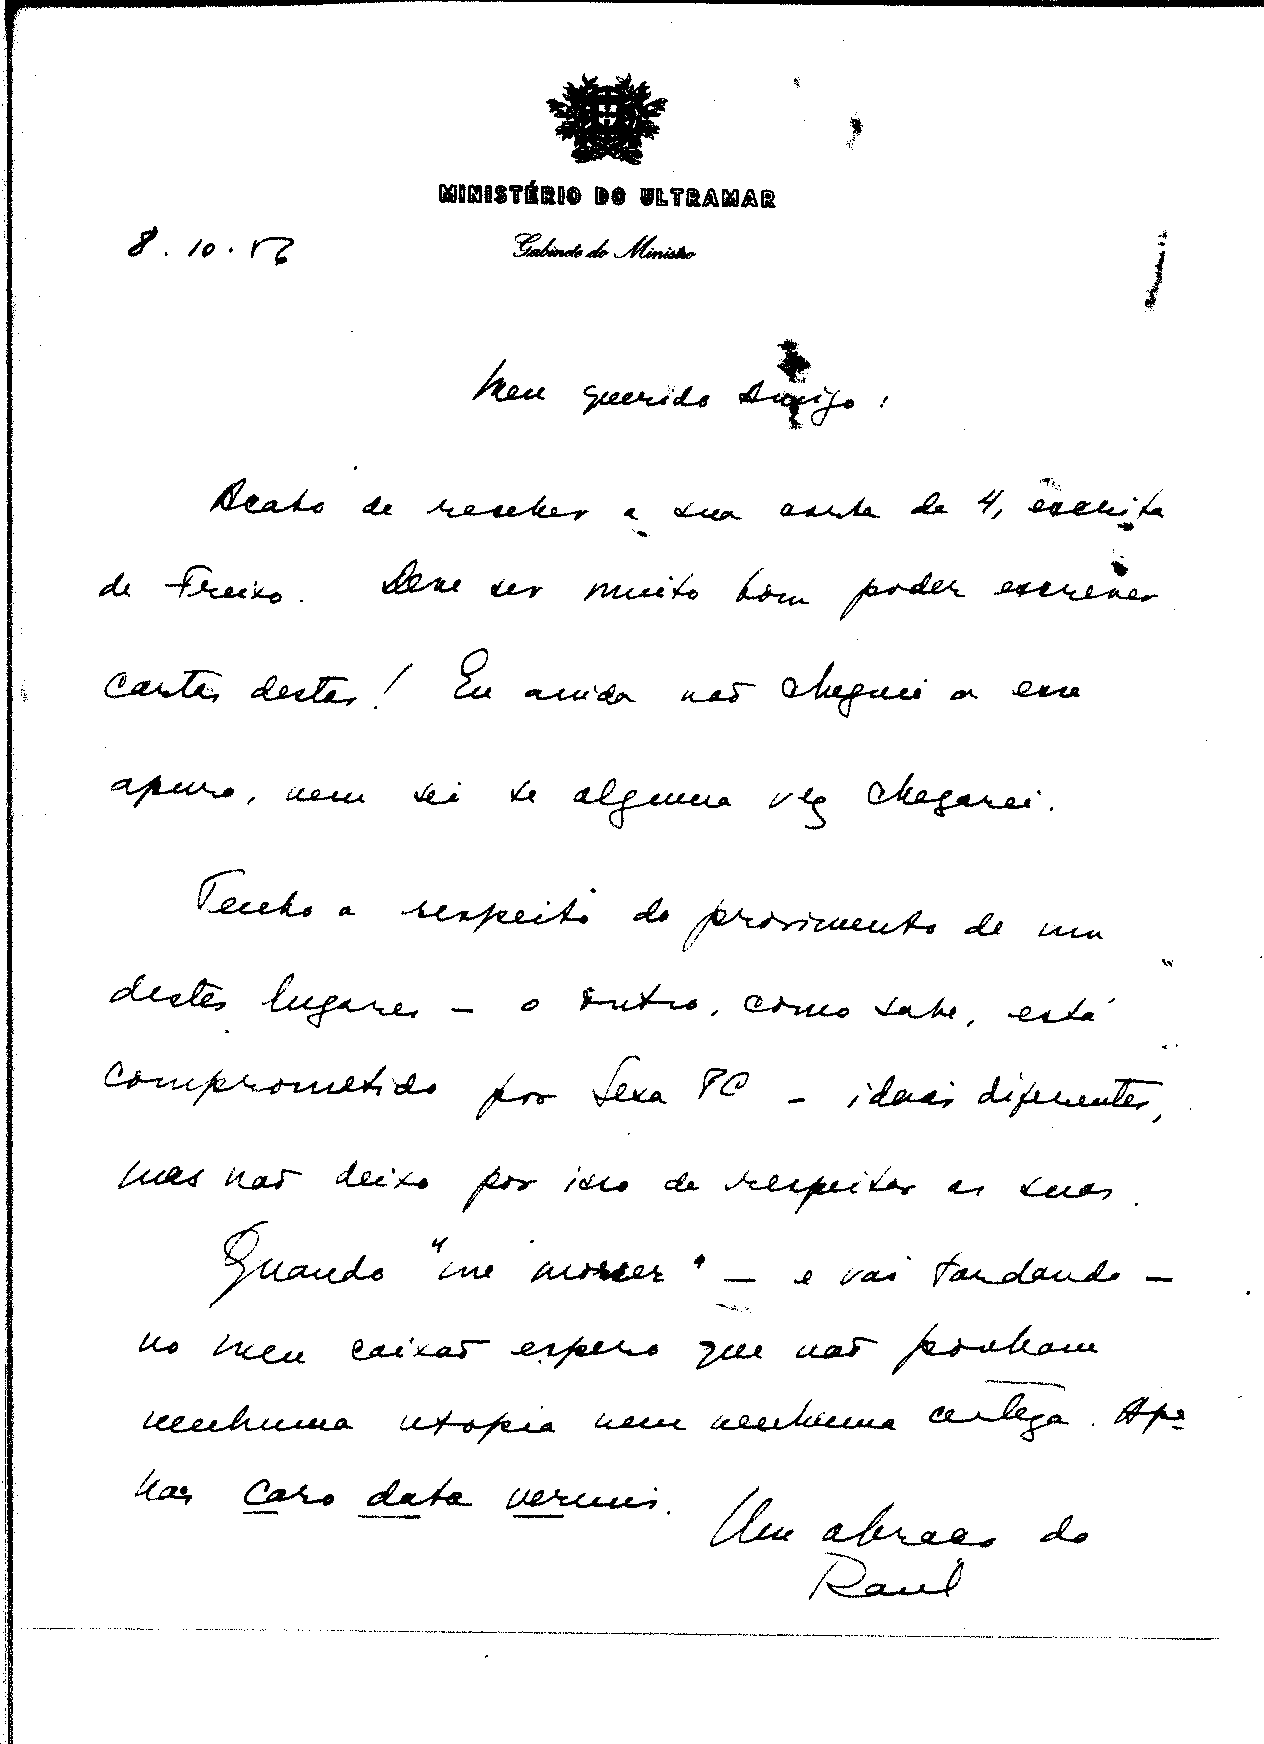 MINISTÉRIO DO ULTRAMAR
8.10.56 Gabinete do Ministro
Meu querido Amigo:
Acabo de receber a sua carta de 4, escrita
de Freixo. Deve ser muito bom poder escrever
cartas destas! Eu ainda não cheguei a esse
apuro, nem sei se alguma vez chegarei.
Tenho a respeito do provimento de um
destes lugares – o outro, como sabe, está
comprometido por Sexa PC – ideias diferentes,
mas não deixo por isso de respeitar as suas.
Quando "me morrer" – e vai tardando –
no meu caixão espero que não ponham
nenhuma utopia nem nenhuma certeza. Ape
nas caro data vermis.
Um abraço do
Raul